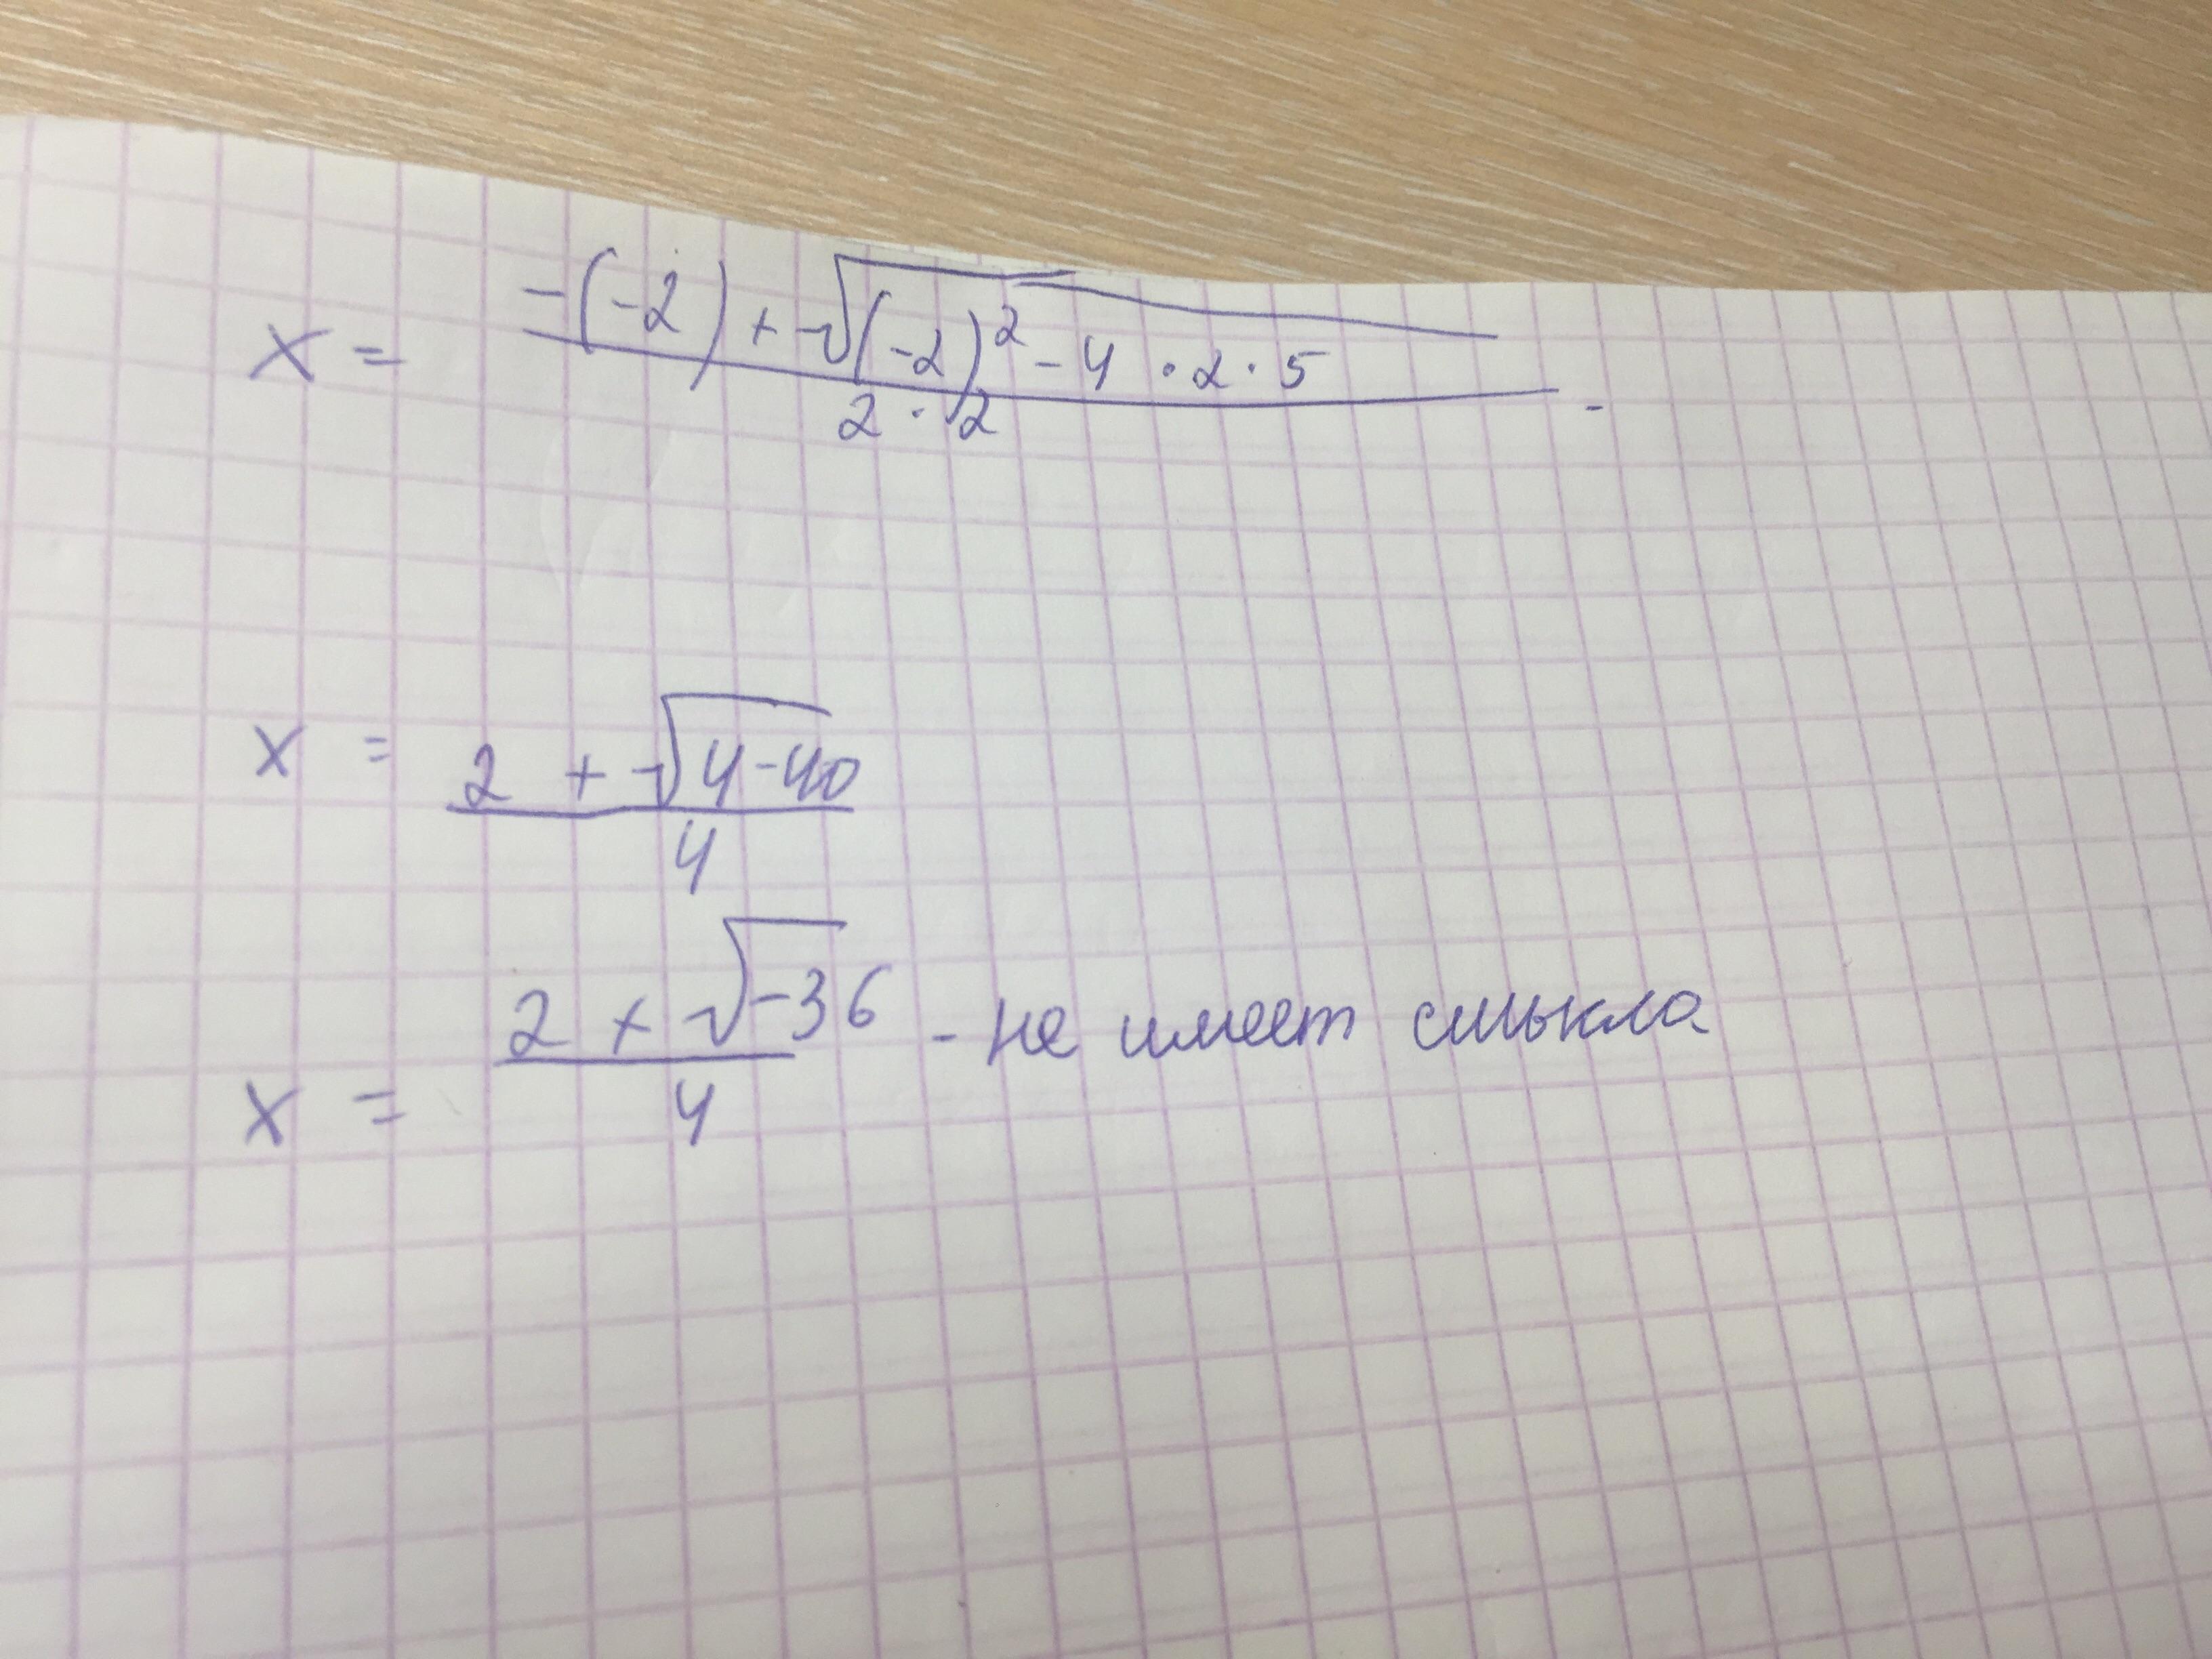 x = (-(-2) + √((-2)² - 4 · 2 · 5)) / (2 · 2) -
x = (2 + √(4-40)) / 4
x = (2 + √(-36)) / 4 - не имеет смысла